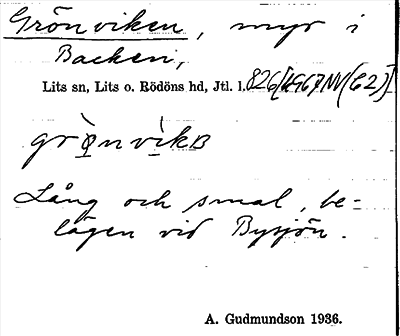 Grönviken, myr i
Backen,
Lits sn, Lits o. Rödöns hd, Jtl. l. 826 [4967 NV (C2)]
grö̀nvìkʙ
Lång och smal, be-
lägen vid Bysjön.
A. Gudmundson 1936.